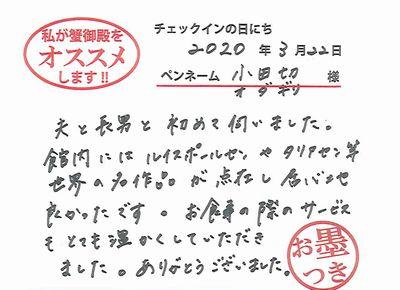 私が蟹御殿を
オススメ
します!!
チェックインの日にち
2020年3月22日
ペンネーム 小田切 様
オダギリ
夫と長男と初めて伺いました。
館内にはルイスポールセンやタリアセン等
世界の名作品が点在し居心地
良かったです。お食事の際のサービス
もとても温かくしていただき
ました。ありがとうございました。
お墨
つき